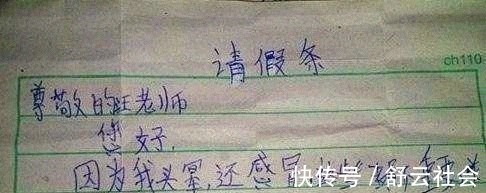 请假条
ch110
尊敬的旺老师
您好,
因为我头晕,还感冒
快传号/舒云社会